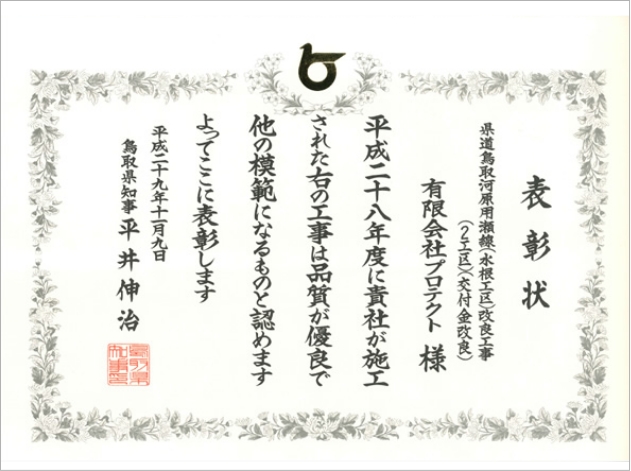 表彰状
県道鳥取河原用瀬線(水根工区)改良工事
(2工区)(交付金改良)
有限会社プロテクト 様
平成二十八年度に貴社が施工
された右の工事は品質が優良で
他の模範になるものと認めます
よってここに表彰します
平成二十九年十一月九日
鳥取県知事 平井伸治